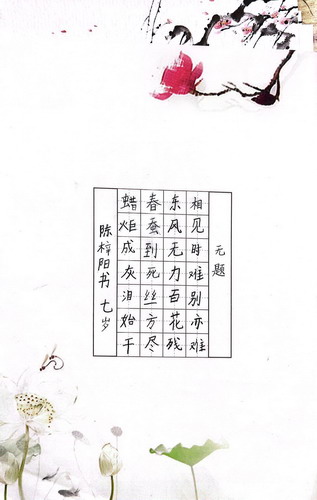 无题
相见时难别亦难
东风无力百花残
春蚕到死丝方尽
蜡炬成灰泪始干
陈梓阳书 七岁